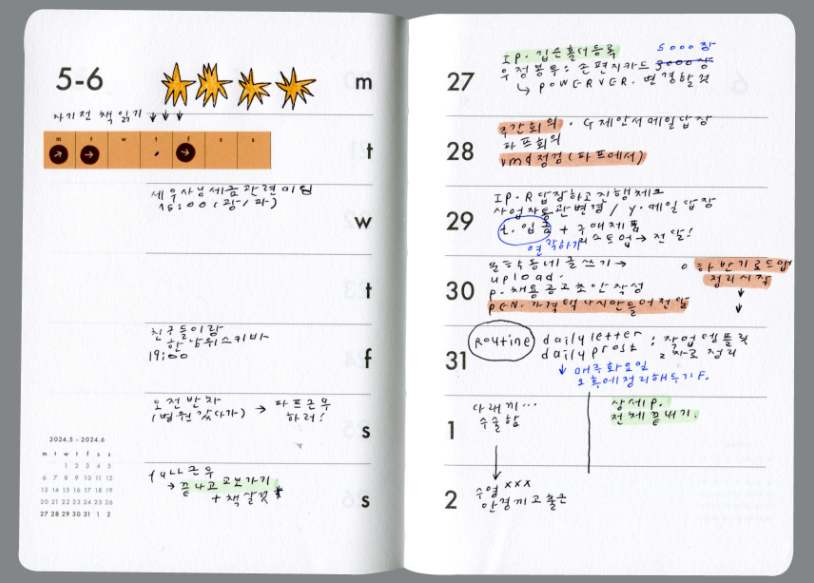 5-6
m
자기전 책읽기 ↓↓↓
m t w t f s s
t
세무사님 세금관련미팅
15:00 (광/파)
w
t
친구들이랑
한남위스키바
19:00
f
오전반차
(병원갔다가) → 파프근무
하러!
s
full근무
→ 끝나고 교보가기
+ 책살것
s
2024.5 - 2024.6
m t w t f s s
1 2 3 4 5
6 7 8 9 10 11 12
13 14 15 16 17 18 19
20 21 22 23 24 25 26
27 28 29 30 31 1 2
27
IP. 깊은홀서등록
5000장
우정봉투: 손편지카드 3000장
↳ POWERVER. 변경할것
28
주간회의 · G 제안서메일답장
파프회의
vmd점검 (파프에서)
29
IP. R 답장하고진행체크
사업자통관변경 / y. 메일답장
t. 입금 + 구매제품
연락하기
리스트업 → 전달!
30
문학동네글쓰기 →
upload.
p. 채용공고초안작성
pEN. 가격택다시만들어전달
○ 하반기로드맵
정리시작
↓
↓
31
Routine
daily letter
daily prost.
: 작업템플릿
으로 정리
↓ 매주화요일
오후에정리해두기F.
1
다래끼…
수술함
상세P.
전체끝내기.
2
수영 xxx
안경끼고출근